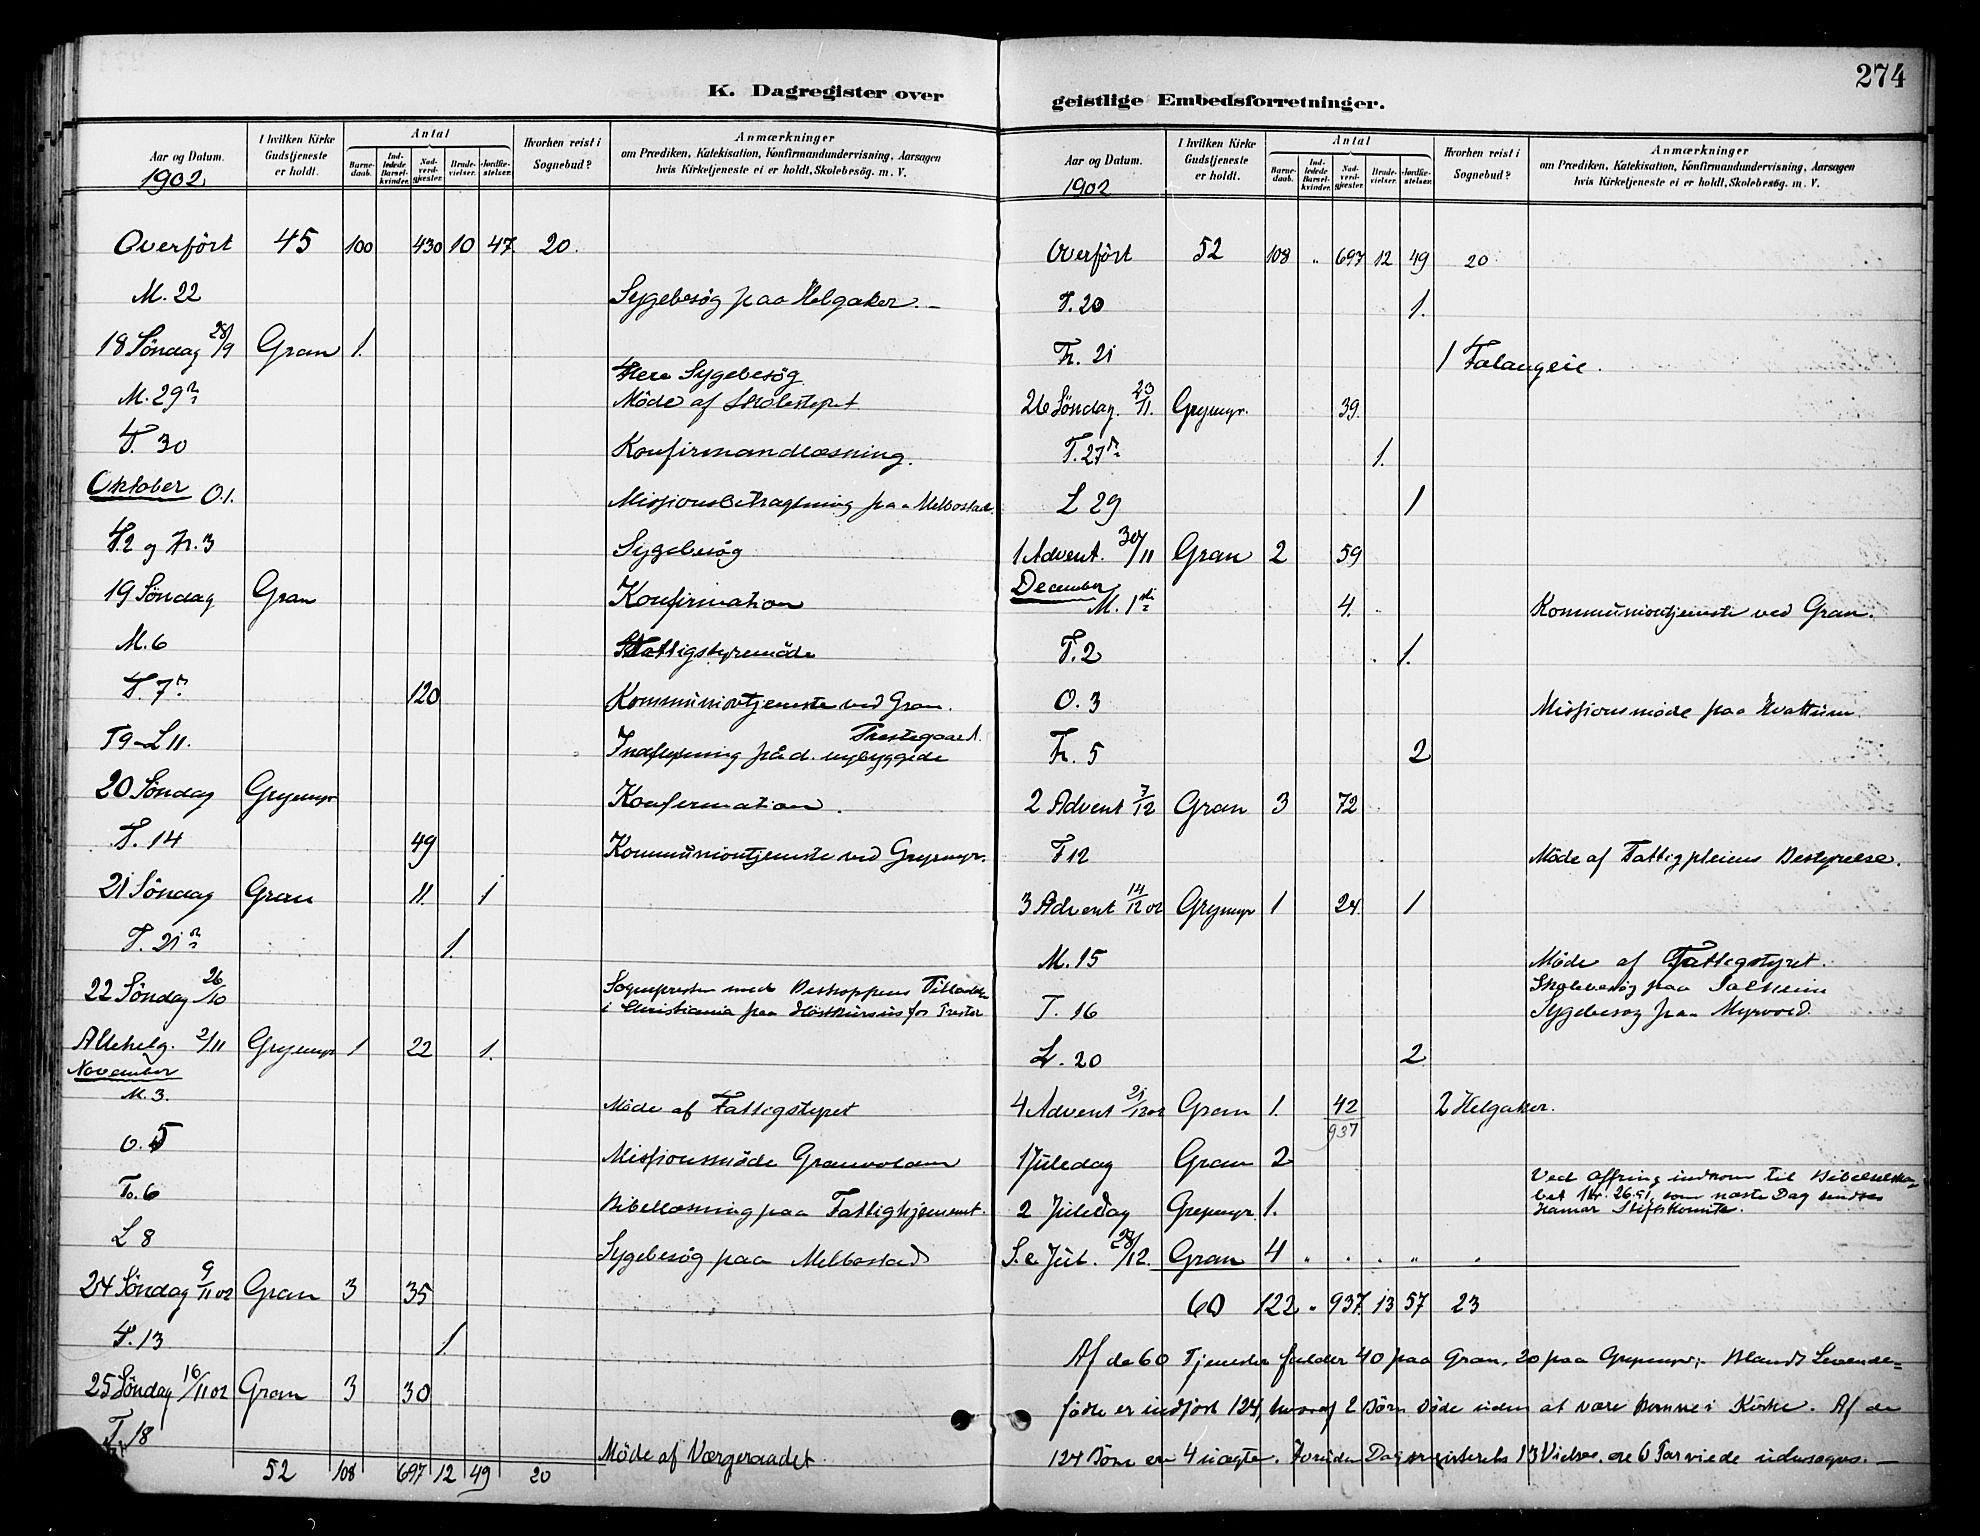 274
K. Dagregister over
Aar og Datum. 1902
I hvilken Kirke Gudstjeneste er holdt.
Antal
Barnedaab.
Indledede Barselkvinder.
Nadverdgjester.
Brudevielser.
Jordfæstelser.
Hvorhen reist i Sognebud?
Anmærkninger
om Prædiken, Katekisation, Konfirmandundervisning, Aarsagen
hvis Kirketjeneste ei er holdt, Skolebesøg. m. V.
Overført 45 100 430 10 47 20.
M. 22 Sygebesøg paa Helgaker.
18 Søndag 28/9 Gran 1.
Flere Sygebesøg
M. 29 Møde af Skolestyret
T. 30 Konfirmandlæsning.
Oktober O 1. Missionsbetragtning paa Melbostad.
T. 2 og Fr. 3 Sygebesøg
19 Søndag Gran Konfirmation
M. 6 Fattigstyremøde
T. 7 120 Kommuniontjeneste ved Gran.
T9-L11. Indflytning på d. nybyggede Prestegaard.
20 Søndag Grymyr Konfirmation.
T. 14 49 Kommuniontjeneste ved Grymyr.
21 Søndag Gran 11. 1
T. 21 1.
22 Søndag 26/10 Sognepresten med Biskoppens Tilladelse
i Christiania paa Høstkursus for Prester
Allehelg. 2/11 Grymyr 1 22 1.
November
M. 3. Møde af Fattigstyret
O. 5 Missionsmøde Granvolden
To. 6 Bibellæsning paa Fattighjemmet.
L 8 Sygebesøg paa Melbostad
24 Søndag 9/11 02 Gran 3 35
T. 13 1.
25 Søndag 16/11 02 Gran 3 30
T. 18 Møde af Værgeraadet
52 108 697 12 49 20
geistlige Embedsforretninger.
Aar og Datum. 1902
I hvilken Kirke Gudstjeneste er holdt.
Antal
Barnedaab.
Indledede Barselkvinder.
Nadverdgjester.
Brudevielser.
Jordfæstelser.
Hvorhen reist i Sognebud?
Anmærkninger
om Prædiken, Katekisation, Konfirmandundervisning, Aarsagen
hvis Kirketjeneste ei er holdt, Skolebesøg. m. V.
Overført 52 108 " 697 12 49 20
T. 20 1.
Fr. 21 1 Falangeie.
26 Søndag. 23/11. Grymyr. 39.
T. 27 1.
L 29 1
1 Advent. 30/11 Gran 2 59
December
M. 1ste 4. Kommuniontjeneste ved Gran.
T. 2 1.
O. 3 Missionsmøde paa Hvattum.
Fr. 5 2
2 Advent 7/12 Gran 3 72
F 12 Møde af Fattigpleiens Bestyrelse.
3 Advent 14/12 02 Grymyr 1 24 1
M. 15 Møde af Fattigstyret.
Skolebesøg paa Solheim
T. 16 Sygebesøg paa Myrvold.
L. 20 2
4 Advent 21/12 02 Gran 1. 42 2 Helgaker.
937
1 Juledag Gran 2
Ved Offring indkom til Bibelselska-
2 Juledag Grymyr 1. bet Kr. 26.91, som næste Dag sendtes
Hamar Stiftskomite.
S. e. Jul. 28/12. Gran 4 " . . " .
60 122 " 937. 13 57 23
Af de 60 Tjenester falder 40 paa Gran, 20 paa Grymyr; Blandt Levende=
fødte er indført 124, hvoraf 2 Børn døde uden at være fremme i Kirke. Af de
124 Børn ere 4 uægte. Foruden Dagregisterets 13 Vielser, ere 6 Par viede udensogns.